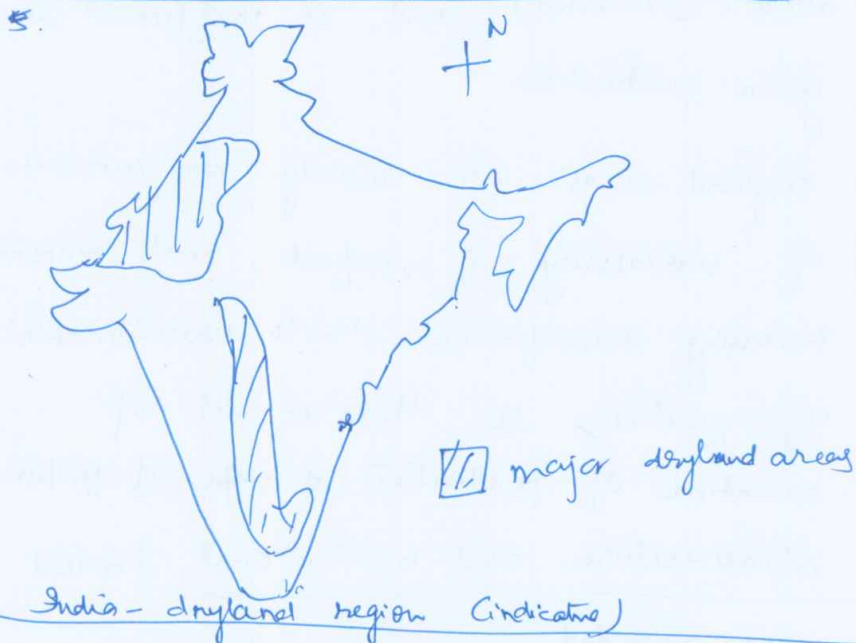 5.
N
major dryland areas
India - dryland region (indicative)